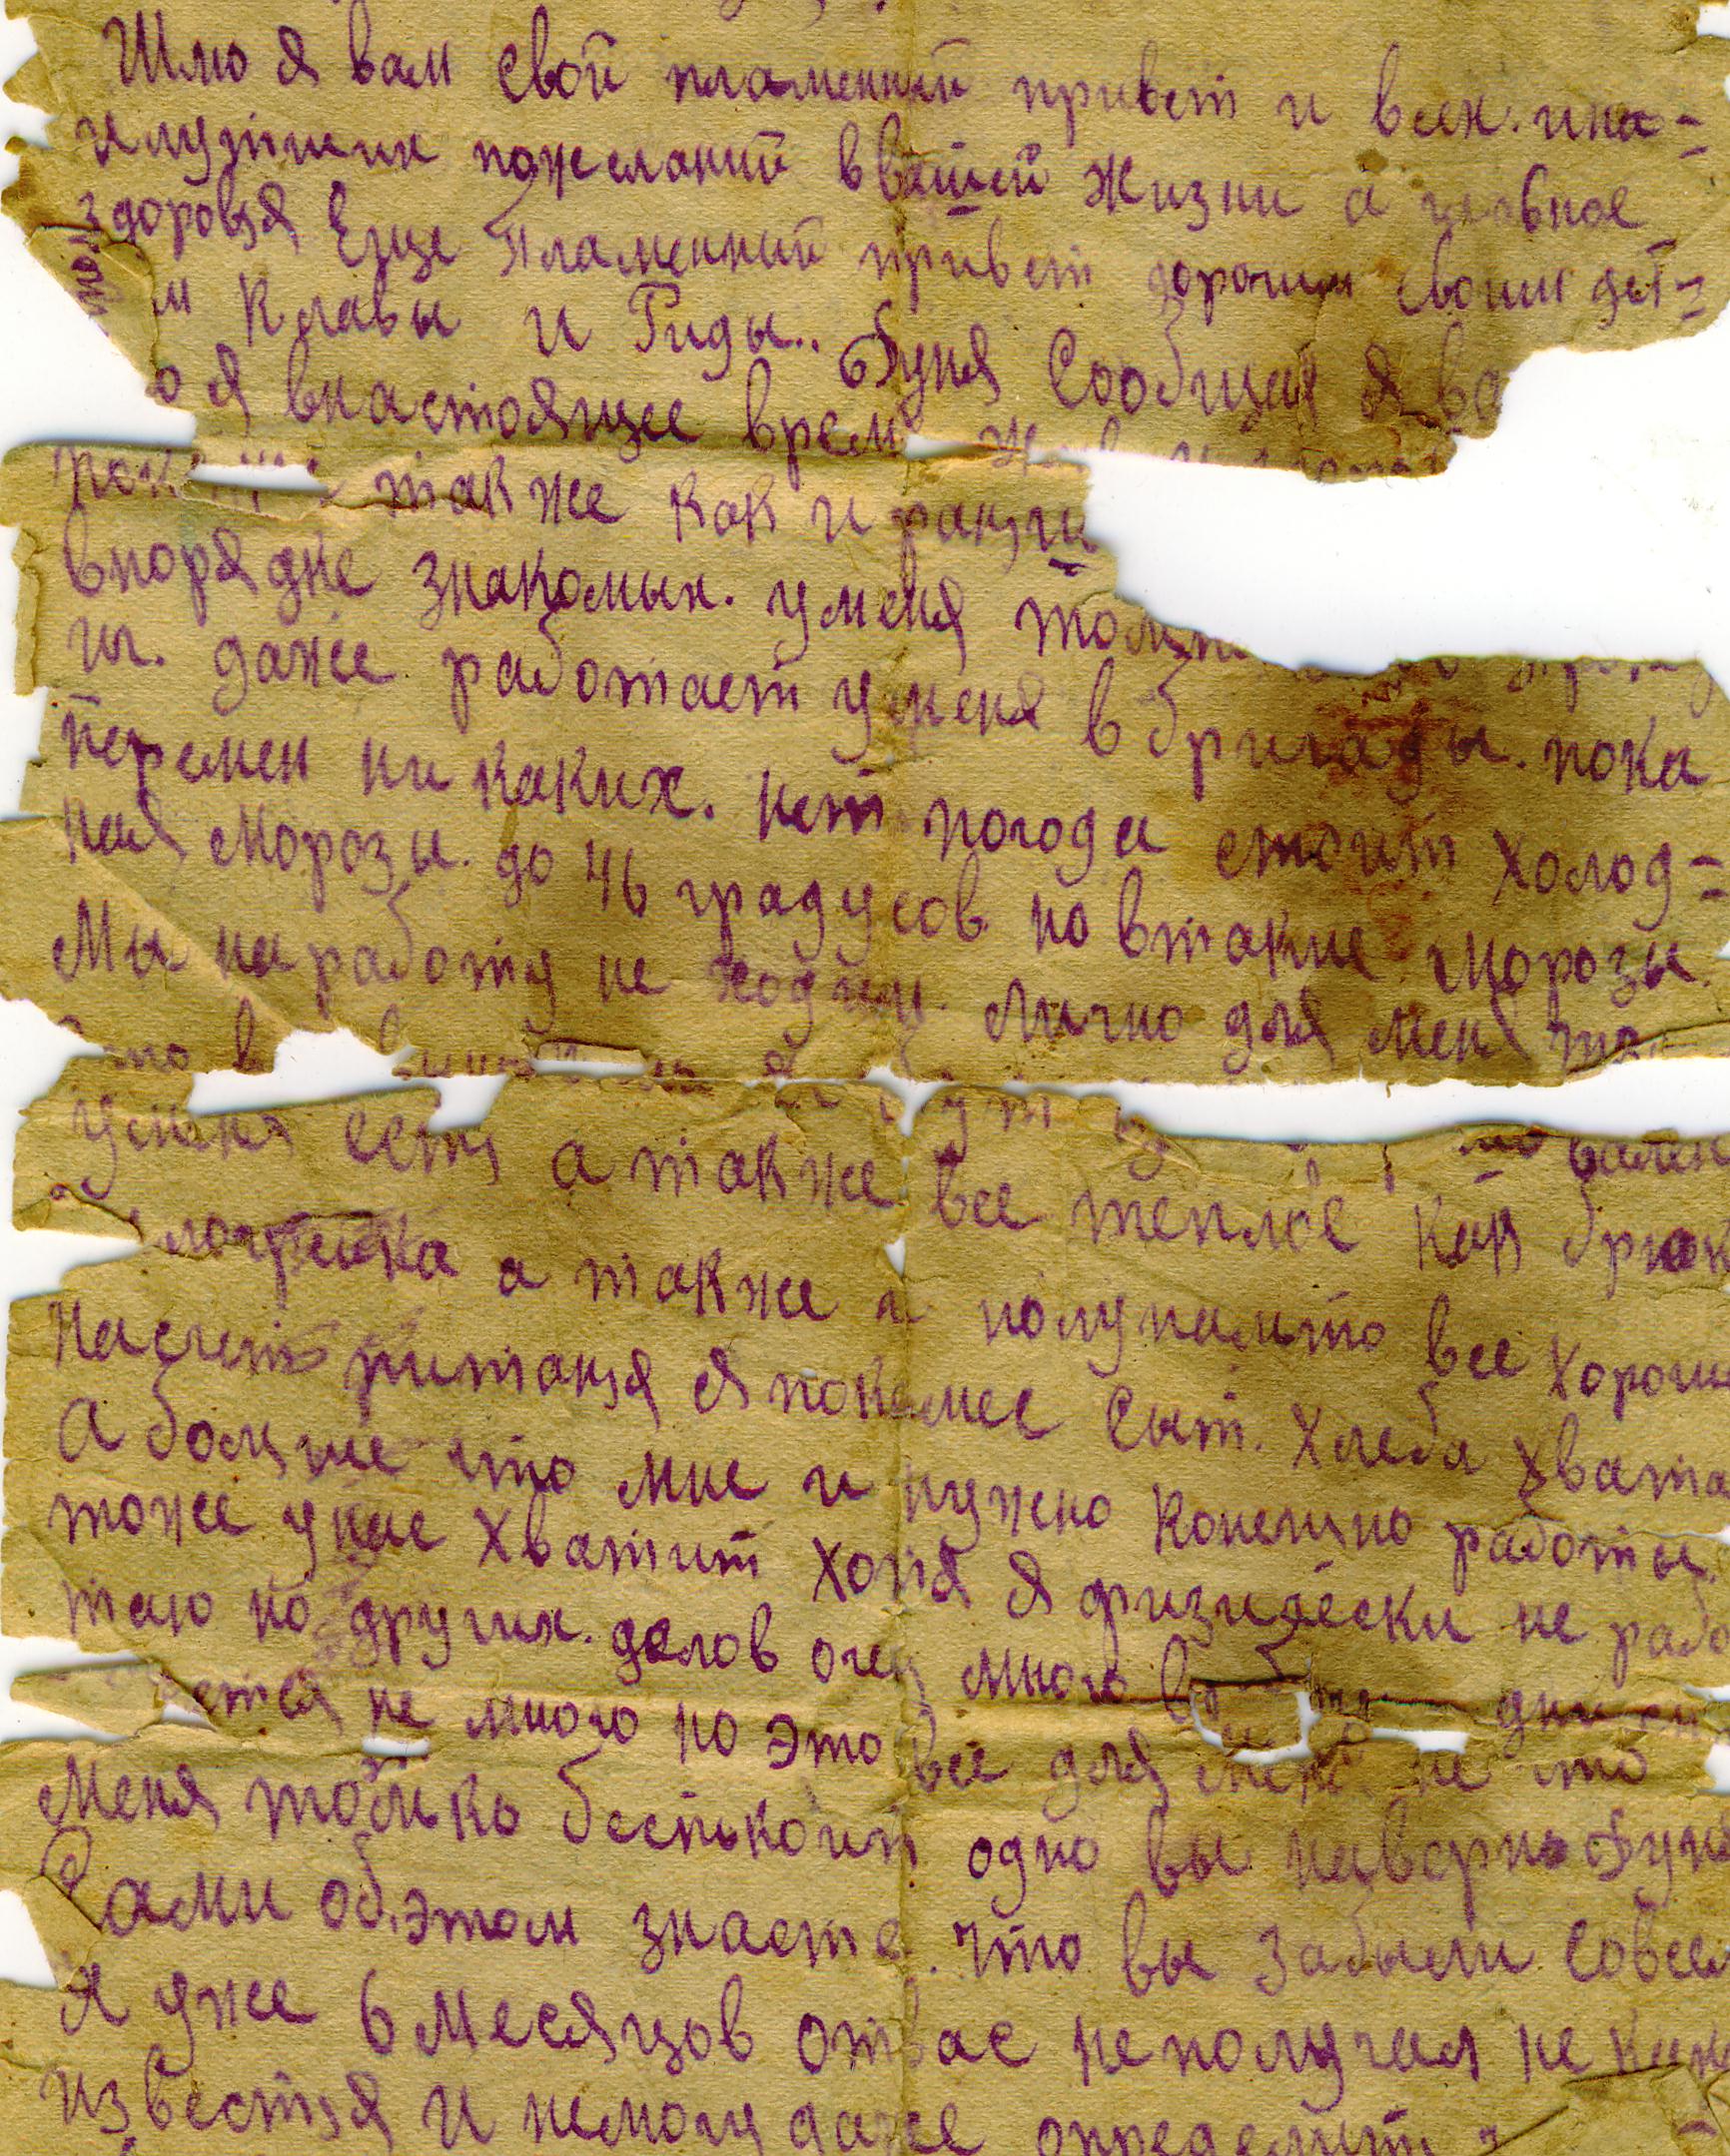 Шлю я вам свой пламенный привет и всех. ина=
илутших пожеланий в вашей жизни а главное
здоровья Еще пламенный привет дорогим своим дет=
м Клавы и Гиды.. Дуня Сообщая я ва
о я внастоящее врем
также как и раньш
впорядке знакомых. уменя
ых. даже работает уменя в бригады. пока
перемен ни каких. нет погода стоит холод=
ная морозы. до 46 градусов но втакие морозы.
Мы на работу не ходим. Лично для меня

уменя есть а также все теплое как брюк
а также и полупальто все хорош
насчет питанья я покамес сыт. хлеба хвата
А больше что мне и нужно конешно работы.
тоже унас хватит хотя я физически не рабо
таю но других. делов очен много
ется не много но это все для меня не что
Меня только беспокоит одно вы наверно Дуня
Сами об.этом знаете. что вы забыли совсем
Я уже 6 месяцов отвас неполучал не как
известья и немогу даже определить